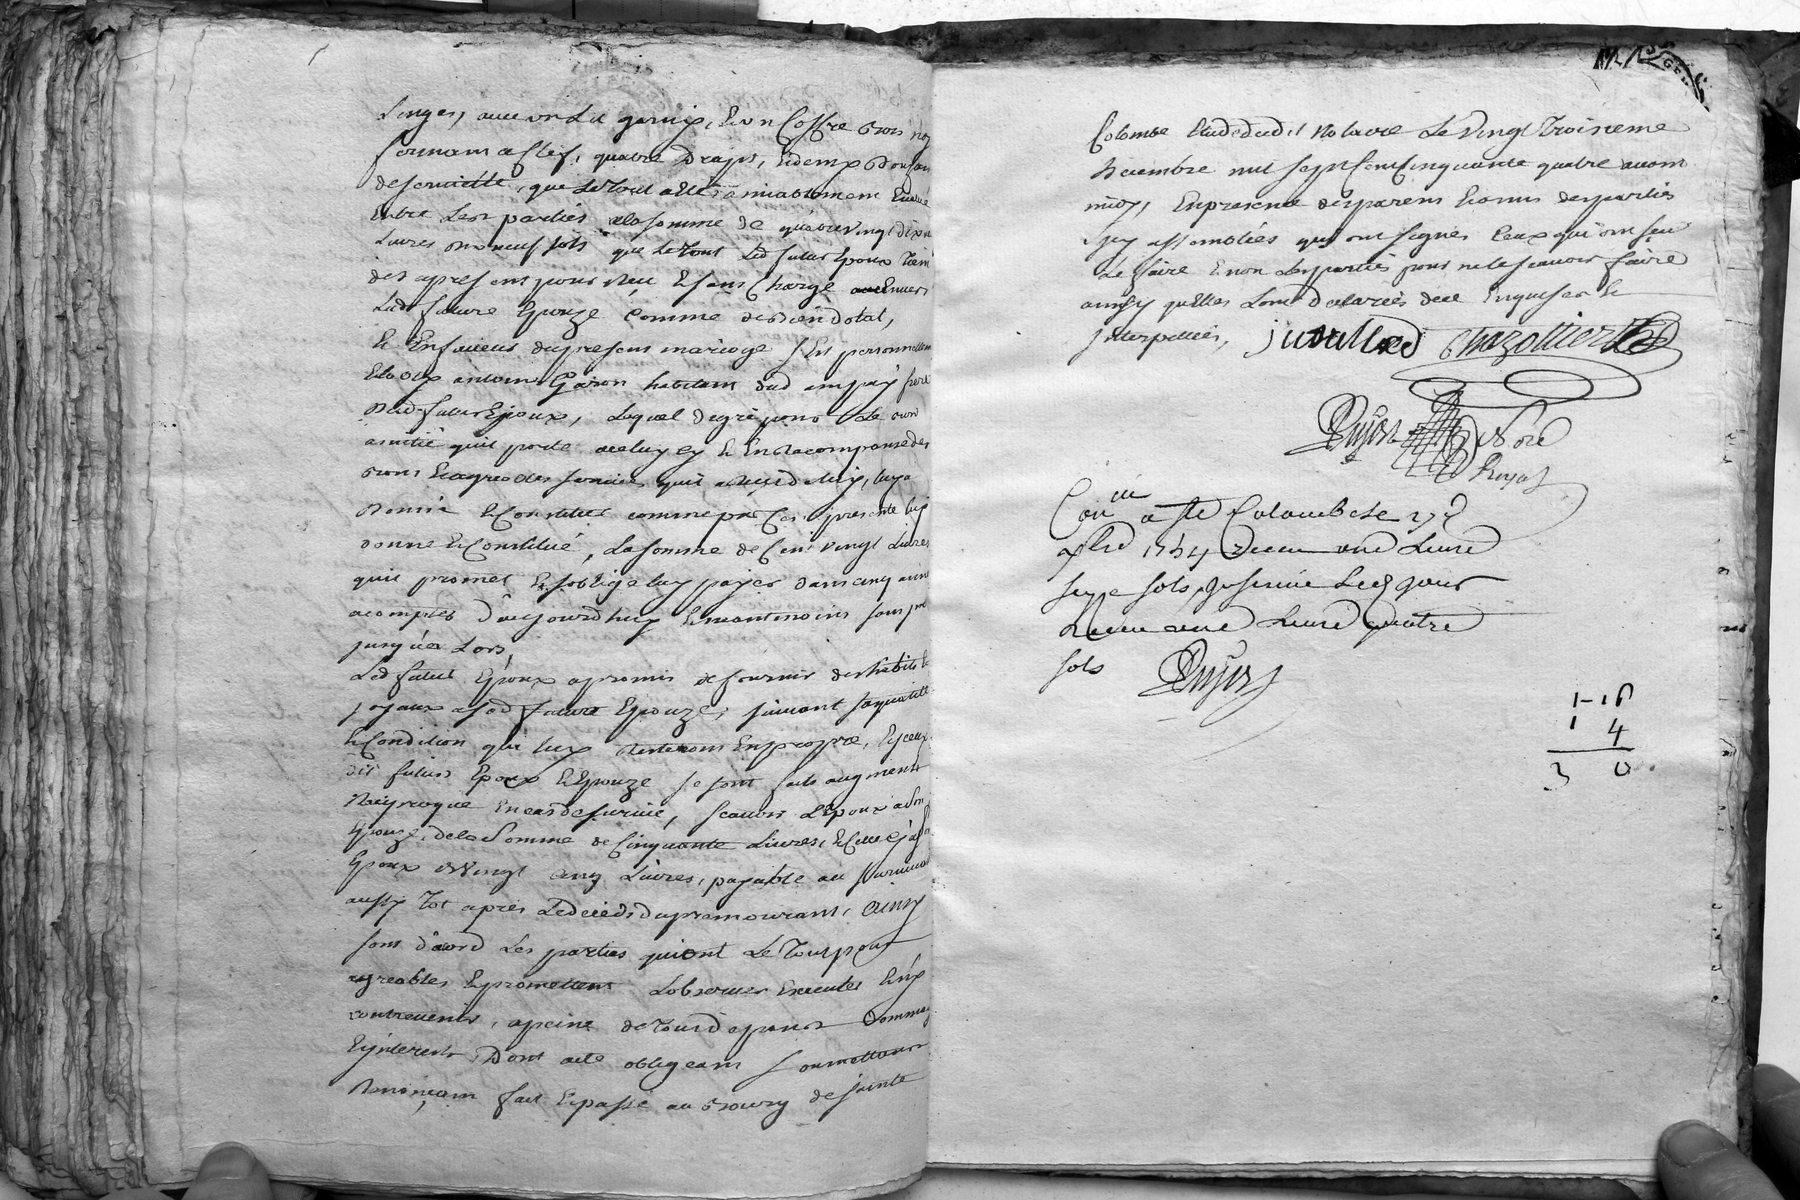 Linges, avec un Lit garnix, Et un Coffre bois noyer
fermant a Clef, quatre Draps, Et demy Douzaine
de serviette, que Le tout a Eté amiablement Evalué
Entre Les parties a la somme de quatre vingt dix
Livres dix neuf sols que Le tout Led futur Epoux tient
des apresent pour reçu Et s'en Charge Envers
Lad future Epouze Comme de bien dotal,
Et En faveur du present mariage s'Est personnellement
Etably antoine habitant dud ampuy frere
Dud futur Epoux, Lequel de gré pour La bon
amitié quil porte a celuy cy Et En Recompance des
bons Et agreables services quil a reçu de luy, luy a
Donné Et Constitué comme par Ces presente luy
donne Et Constitué, La somme de Cent vingt Livres
quil promet Et s'oblige luy payer dans cinq ans
acompter D'aujourd'huy Et neantmoins sans
jusqu'a Lors,
Led futur Epoux a promis de fournir des habits Et
joyaux a sad future Epouze, suivant sa qualité
Et Condition qui luy Resteront En propre, Et ceux
dit futurs Epoux Et Epouze se sont faits augment
Reciproque En cas de survie, scavoir L'Epoux a son
Epouze, de la Somme de Cinquante Livres, Et Celle cy a son
Epoux de Vingt cinq Livres, payable au survivant
aussy Tot après Le decéds du premourant, Ainsy
sont d'acord Les parties qui ont Le Tout pour
agreables Et promettent L'observer Executer Et n'y
contrevenir, a peine de tous depens Dommages
Et interests, Dont acte obligeant soumettant
Renonçant fait Et passé au bourg de sainte
Colombe Etude dudit Notaire Le Vingt troisieme
Decembre mil sept Cent Cinquante quatre avant
midy, En presence des parens Et amis des parties
Icy assemblées qui ont signés Ceux qui ont sçu
Le faire Et non Les parties pour ne le scavoir faire
ainsy quelles L'ont declarées de ce Enquises Et
Interpellées, Chazottier
Dujast Nore
Royal
Con lle a ste Colombe le 27
xbre 1754 Receu une Livre
seize sols, Insinué Led jour
Receu une Livre quatre
sols Dujast
1-16
1 4
3 0